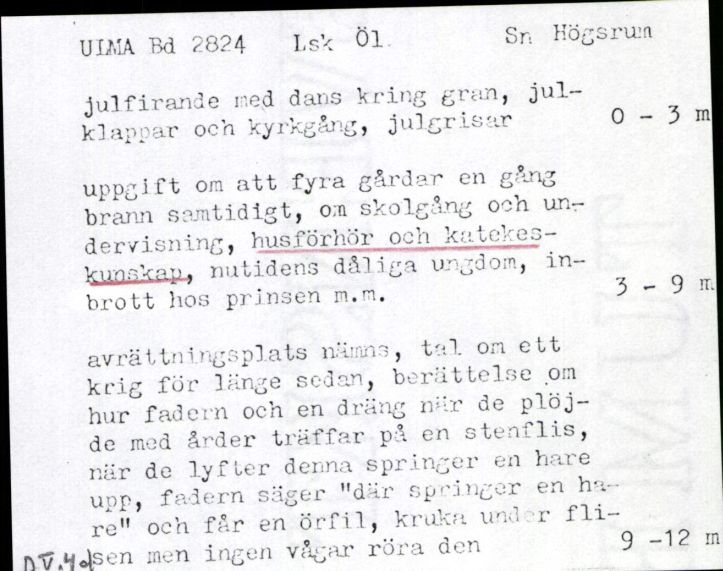 ULMA Bd 2824 Lsk Öl. Sn Högsrum
julfirande med dans kring gran, jul-
klappar och kyrkgång, julgrisar 0 - 3 m
uppgift om att fyra gårdar en gång
brann samtidigt, om skolgång och un-
dervisning, husförhör och katekes-
kunskap, nutidens dåliga ungdom, in-
brott hos prinsen m.m. 3 - 9 m
avrättningsplats nämns, tal om ett
krig för länge sedan, berättelse om
hur fadern och en dräng när de plöj-
de med årder träffar på en stenflis,
när de lyfter denna springer en hare
upp, fadern säger "där springer en ha-
re" och får en örfil, kruka under fli-
sen men ingen vågar röra den 9 -12 m